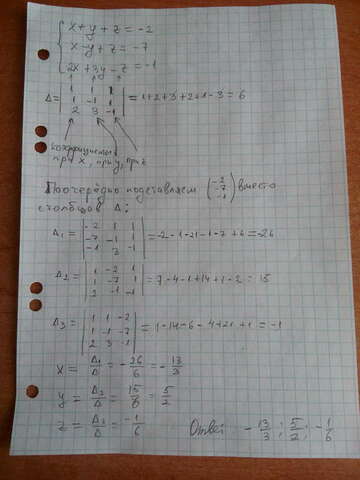 x + y + z = -2
x - y + z = -7
2x + 3y - z = -1
Δ = | 1 1 1 | = 1+2+3+2+1-3 = 6
| 1 -1 1 |
| 2 3 -1 |
коэффициенты
при x, при y, при z
Поочерёдно подставляем (-2 -7 -1) вместо
столбцов Δ:
Δ1 = | -2 1 1 | = -2-1-21-1-7+6 = -26
| -7 -1 1 |
| -1 3 -1 |
Δ2 = | 1 -2 1 | = 7-4-1+14+1-2 = 15
| 1 -7 1 |
| 2 -1 -1 |
Δ3 = | 1 1 -2 | = 1-14-6-4+21+1 = -1
| 1 -1 -7 |
| 2 3 -1 |
x = Δ1/Δ = -26/6 = -13/3
y = Δ2/Δ = 15/6 = 5/2
z = Δ3/Δ = -1/6 Ответ -13/3; 5/2; -1/6